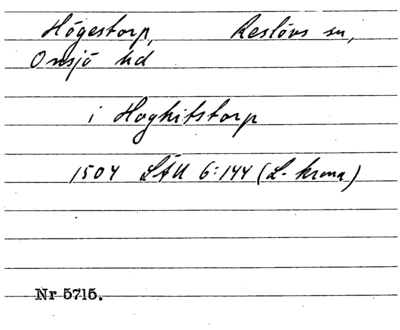 Högestorp, Reslövs sn,
Onsjö hd
i Hoghitstorp
1504 LÄU 6:144 (L-krona)
Nr 5715.